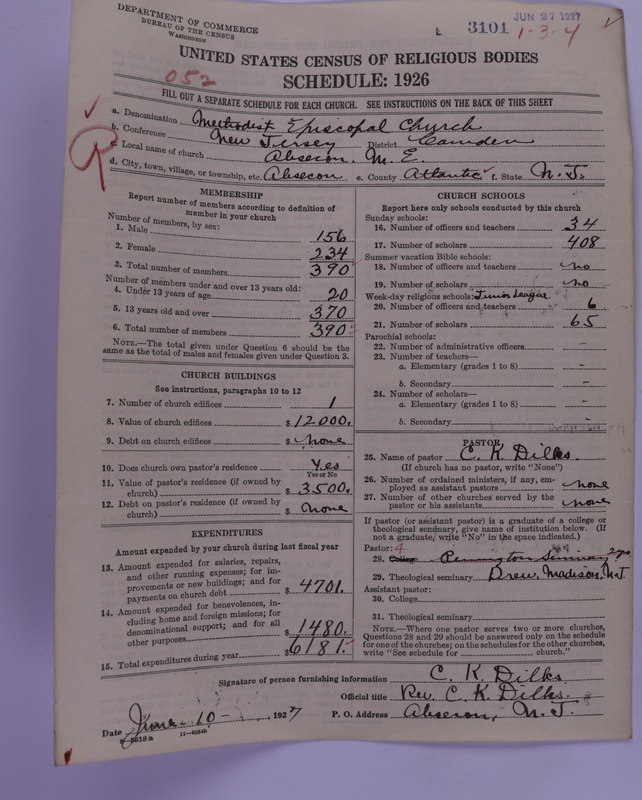 DEPARTMENT OF COMMERCE
BUREAU OF THE CENSUS
WASHINGTON
L 3101 JUN 27 1927
1-3-4
UNITED STATES CENSUS OF RELIGIOUS BODIES
052
SCHEDULE: 1926
FILL OUT A SEPARATE SCHEDULE FOR EACH CHURCH. SEE INSTRUCTIONS ON THE BACK OF THIS SHEET
a. Denomination Methodist Episcopal Church
b. Conference New Jersey District Camden
c. Local name of church Absecon, M. E.
d. City, town, village, or township, etc. Absecon e. County Atlantic f. State N. J.
MEMBERSHIP
Report number of members according to definition of
member in your church
Number of members, by sex:
1. Male 156
2. Female 234
3. Total number of members 390
Number of members under and over 13 years old:
4. Under 13 years of age 20
5. 13 years old and over 370
6. Total number of members 390
NOTE.—The total given under Question 6 should be the
same as the total of males and females given under Question 3.
CHURCH BUILDINGS
See instructions, paragraphs 10 to 12
7. Number of church edifices 1
8. Value of church edifices $ 12000.
9. Debt on church edifices $ None
10. Does church own pastor's residence Yes
Yes or No
11. Value of pastor's residence (if owned by
church) $ 3500.
12. Debt on pastor's residence (if owned by
church) $ None
EXPENDITURES
Amount expended by your church during last fiscal year
13. Amount expended for salaries, repairs,
and other running expenses; for im-
provements or new buildings; and for
payments on church debt $ 4701.
14. Amount expended for benevolences, in-
cluding home and foreign missions; for
denominational support; and for all
other purposes $ 1480.
15. Total expenditures during year $ 6181.
CHURCH SCHOOLS
Report here only schools conducted by this church
Sunday schools:
16. Number of officers and teachers 34
17. Number of scholars 408
Summer vacation Bible schools:
18. Number of officers and teachers no
19. Number of scholars no
Week-day religious schools: Junior League
20. Number of officers and teachers 6
21. Number of scholars 65
Parochial schools:
22. Number of administrative officers -
23. Number of teachers—
a. Elementary (grades 1 to 8) -
b. Secondary -
24. Number of scholars—
a. Elementary (grades 1 to 8) -
b. Secondary -
PASTOR
25. Name of pastor C. K. Dilks.
(If church has no pastor, write "None")
26. Number of ordained ministers, if any, em-
ployed as assistant pastors none
27. Number of other churches served by the
pastor or his assistants none
If pastor (or assistant pastor) is a graduate of a college or
theological seminary, give name of institution below. (If
not a graduate, write "No" in the space indicated.)
Pastor: 4
28. College Pennington Seminary 2 yrs.
29. Theological seminary Drew, Madison, N.J.
Assistant pastor:
30. College
31. Theological seminary
NOTE.—Where one pastor serves two or more churches,
Questions 28 and 29 should be answered only on the schedule
for one of the churches; on the schedules for the other churches,
write "See schedule for church."
Signature of person furnishing information C. K. Dilks
Official title Rev. C. K. Dilks.
Date June 10 - , 1927 P. O. Address Absecon, N. J.
8-5518a 11-9084b